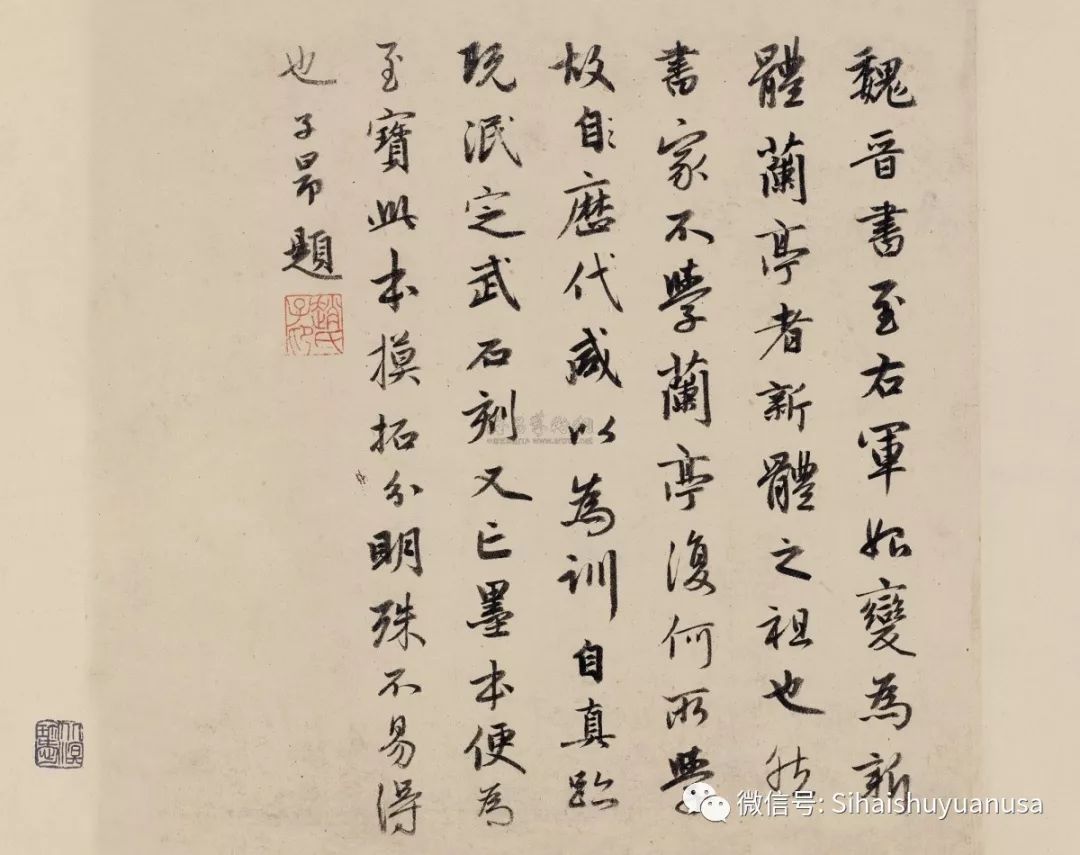 魏晋書至右軍始變為新
體蘭亭者新體之祖也然
書家不學蘭亭復何所學
故自歷代咸以為訓自真跡
既泯定武石刻又亡墨本便為
至寶此本摸拓分明殊不易得
也子昂題
趙氏子昂
微信号: Sihaishuyuanusa